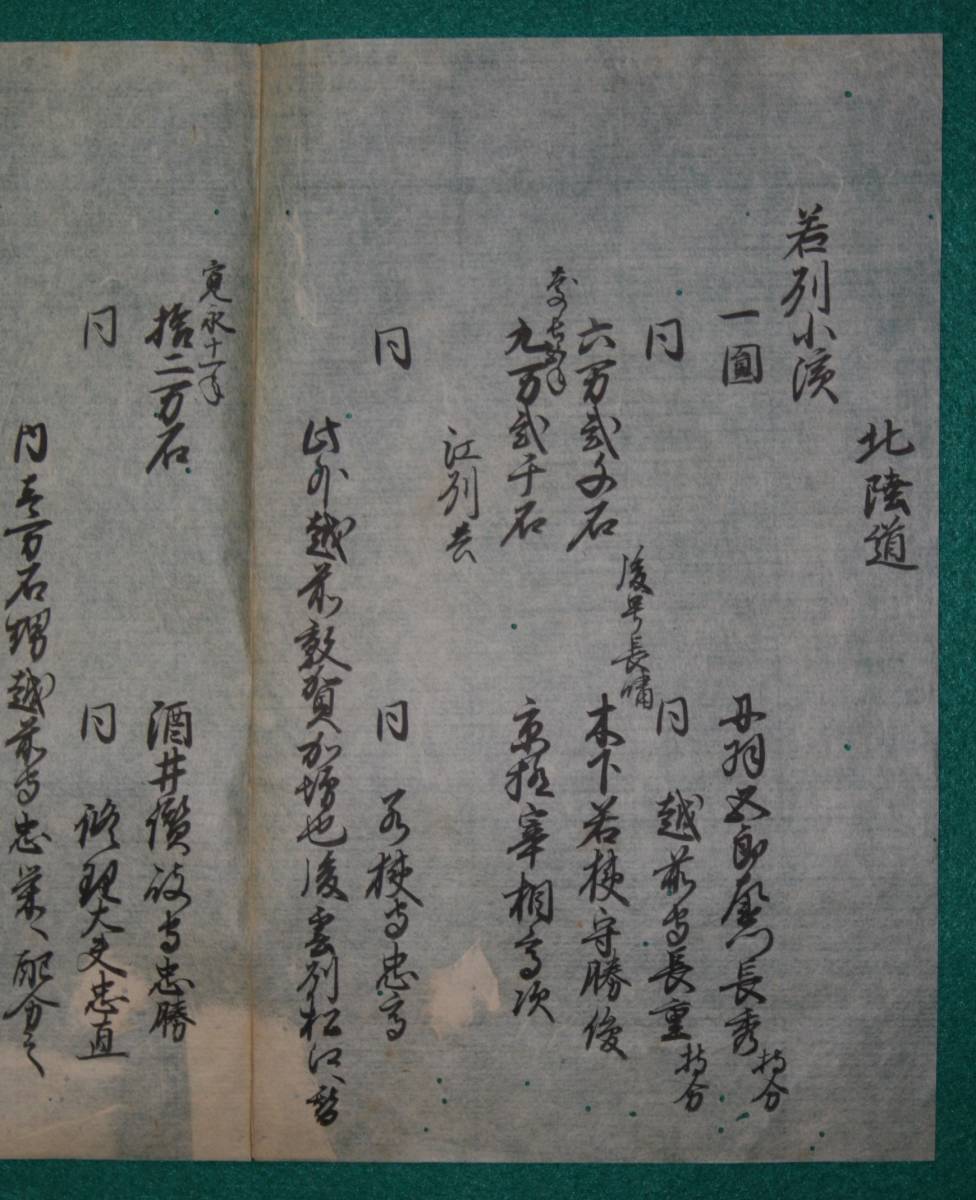 北陸道
若州小濱
一圓 丹羽五郎左衛門長秀 持分
同 同 越前守長重 持分
後号長嘯
六万貳千石 木下若狭守勝俊
九万貳千石 京極宰相高次
江州去
同 同 若狭守忠高
此外越前敦賀加増也後雲州松江替
寛永十一年
拾二万石 酒井讃岐守忠勝
同 同 修理大夫忠直
内壱万石甥越前守忠 配分之